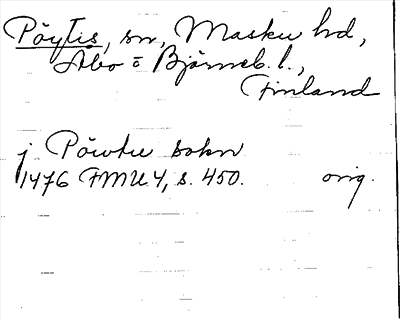 Pöytis, sn, Masku hd,
Åbo o Björneb. l.,
Finland
j Pöwtu sokn
1476 FMU 4, s. 450. orig.